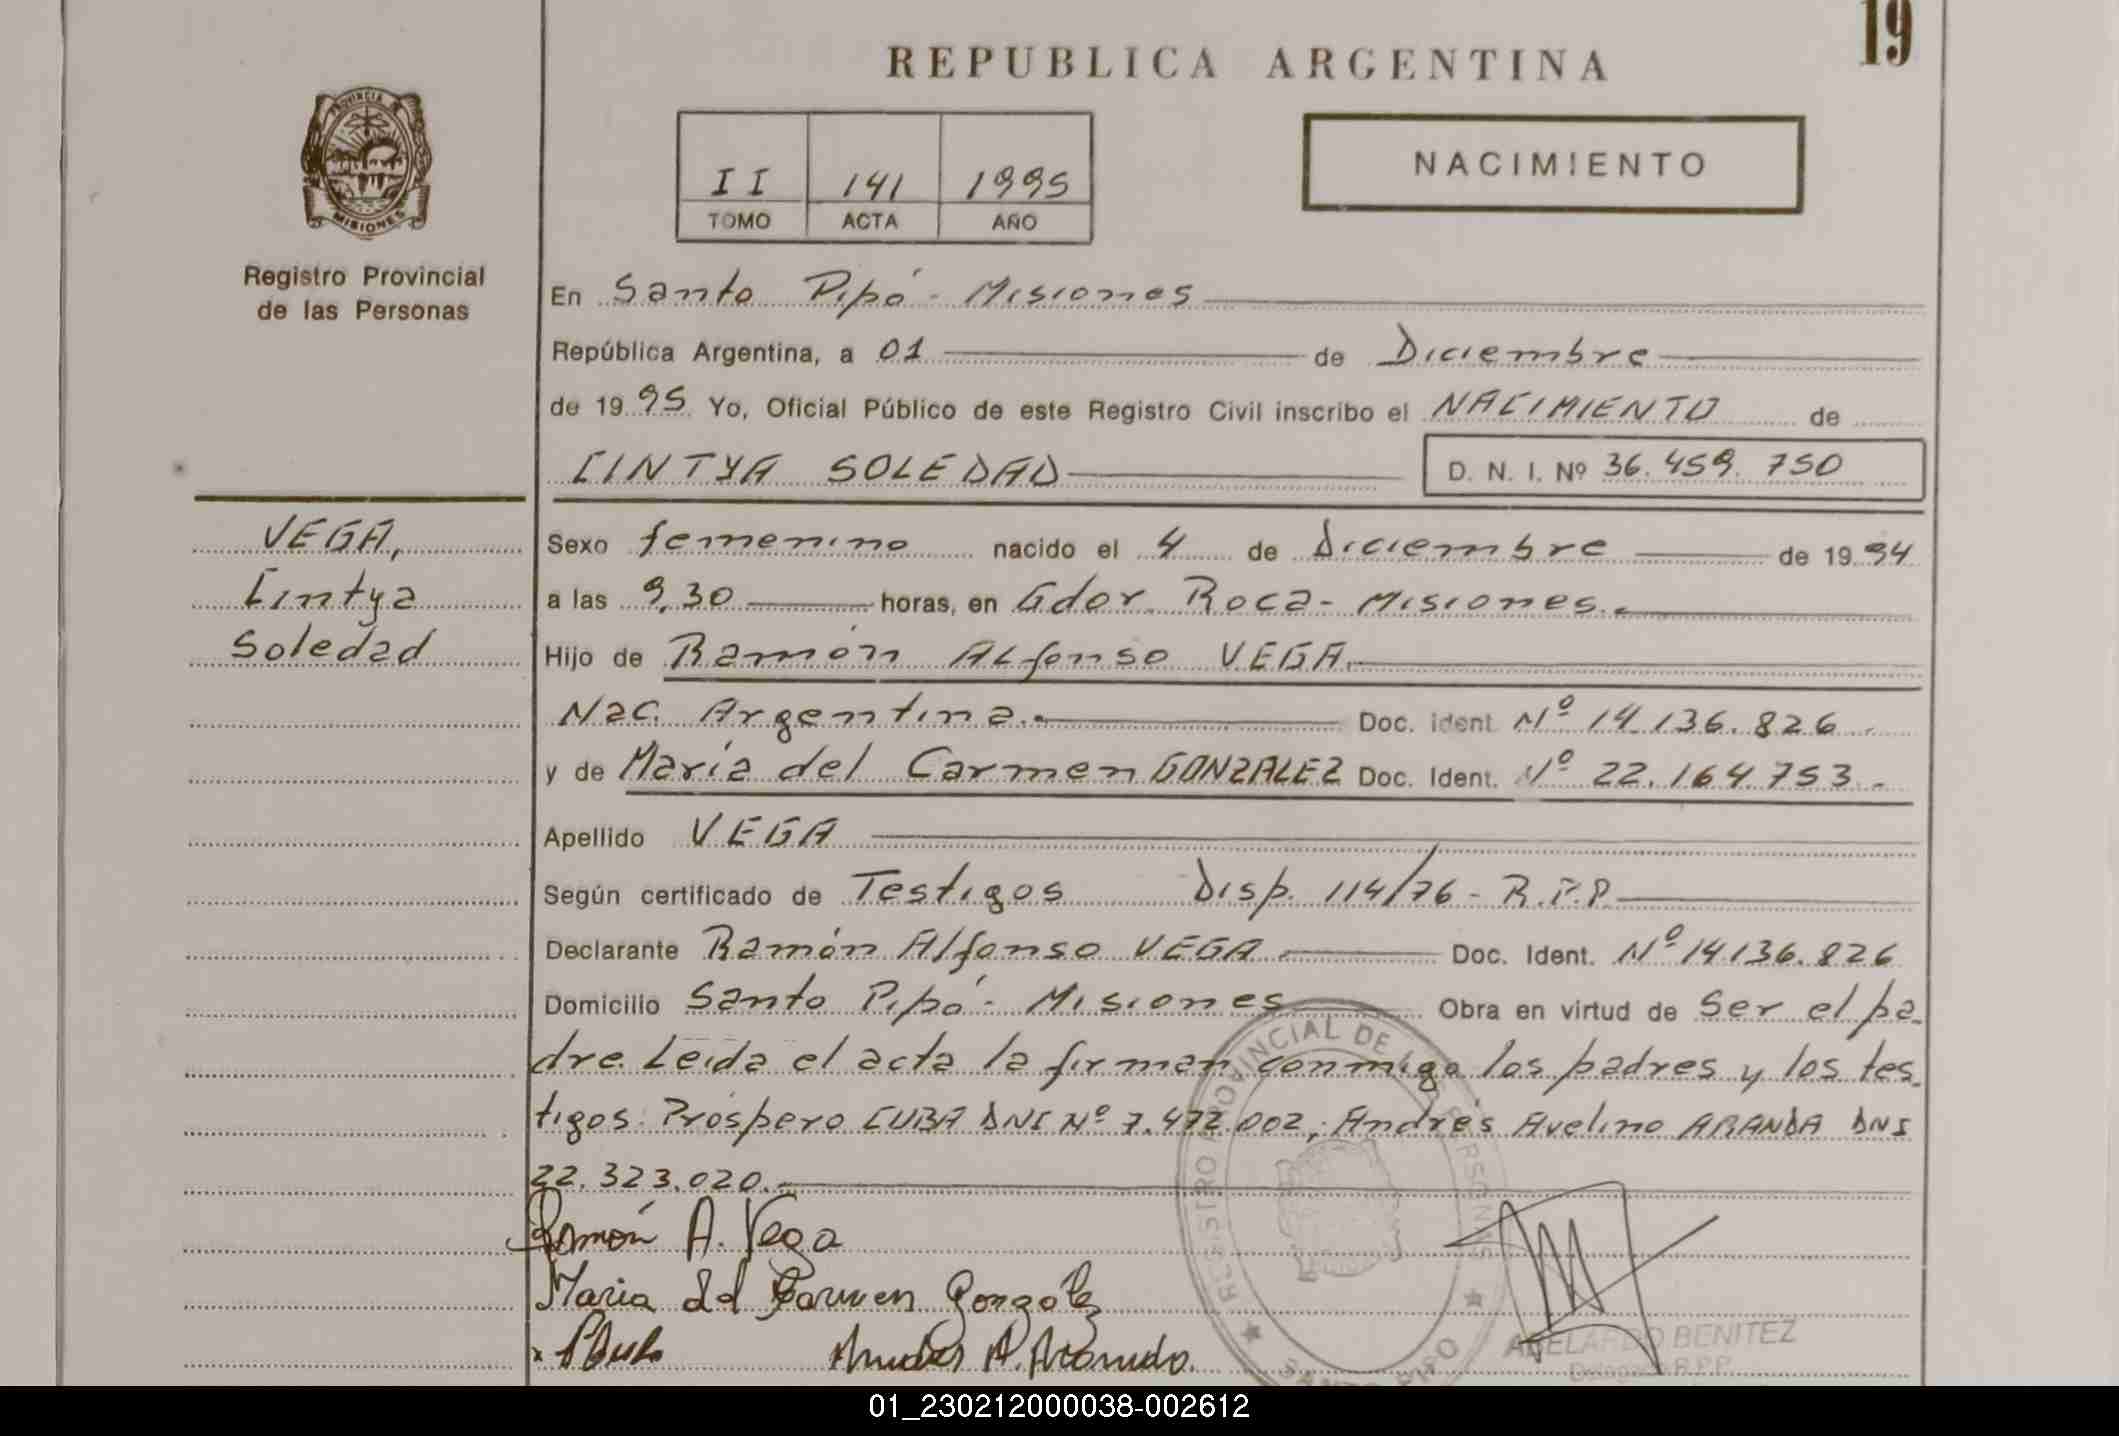 19
REPUBLICA ARGENTINA
PROVINCIA DE
MISIONES
II 141 1995
TOMO ACTA AÑO
NACIMIENTO
Registro Provincial
de las Personas
En Santo Pipó - Misiones
República Argentina, a 01 de Diciembre
de 1995 Yo, Oficial Público de este Registro Civil inscribo el NACIMIENTO de
CINTYA SOLEDAD D. N. I. Nº 36.459.750
VEGA,
Cintya
Soledad
Sexo femenino nacido el 4 de Diciembre de 1994
a las 9,30 horas, en Gdor. Roca - Misiones.
Hijo de Ramón Alfonso VEGA
Nac. Argentina. Doc. ident. Nº 14.136.826
y de María del Carmen GONZALEZ Doc. Ident. Nº 22.164.753.-
Apellido VEGA
Según certificado de Testigos Disp. 114/76 - R.P.P
Declarante Ramón Alfonso VEGA Doc. Ident. Nº 14.136.826
Domicilio Santo Pipó - Misiones Obra en virtud de Ser el pa-
dre. Leída el acta la firman conmigo los padres y los tes-
tigos: Próspero CUBA DNI Nº 7.472.002; Andrés Avelino ARANDA DNI
22.323.020.-
Ramón A. Vega
Maria del Carmen Gonzalez
REGISTRO PROVINCIAL DE LAS PERSONAS
SANTO PIPO
ABELARDO BENITEZ
Delegado R.P.P.
01_230212000038-002612